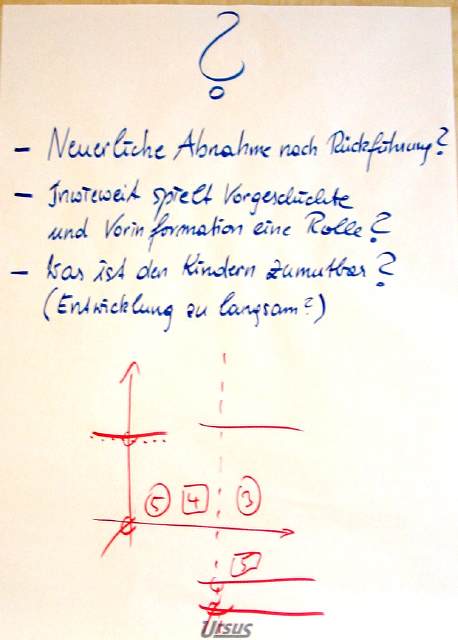 ?
- Neuerliche Abnahme nach Rückführung?
- Inwieweit spielt Vorgeschichte
und Vorinformation eine Rolle?
- Was ist den Kindern zumutbar?
(Entwicklung zu langsam?)
5 4 3
5
Ursus